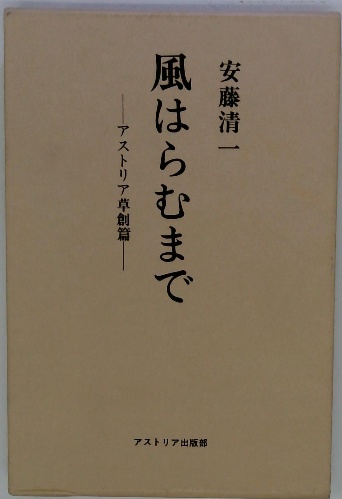 安藤清一
風はらむまで
―アストリア草創篇―
アストリア出版部